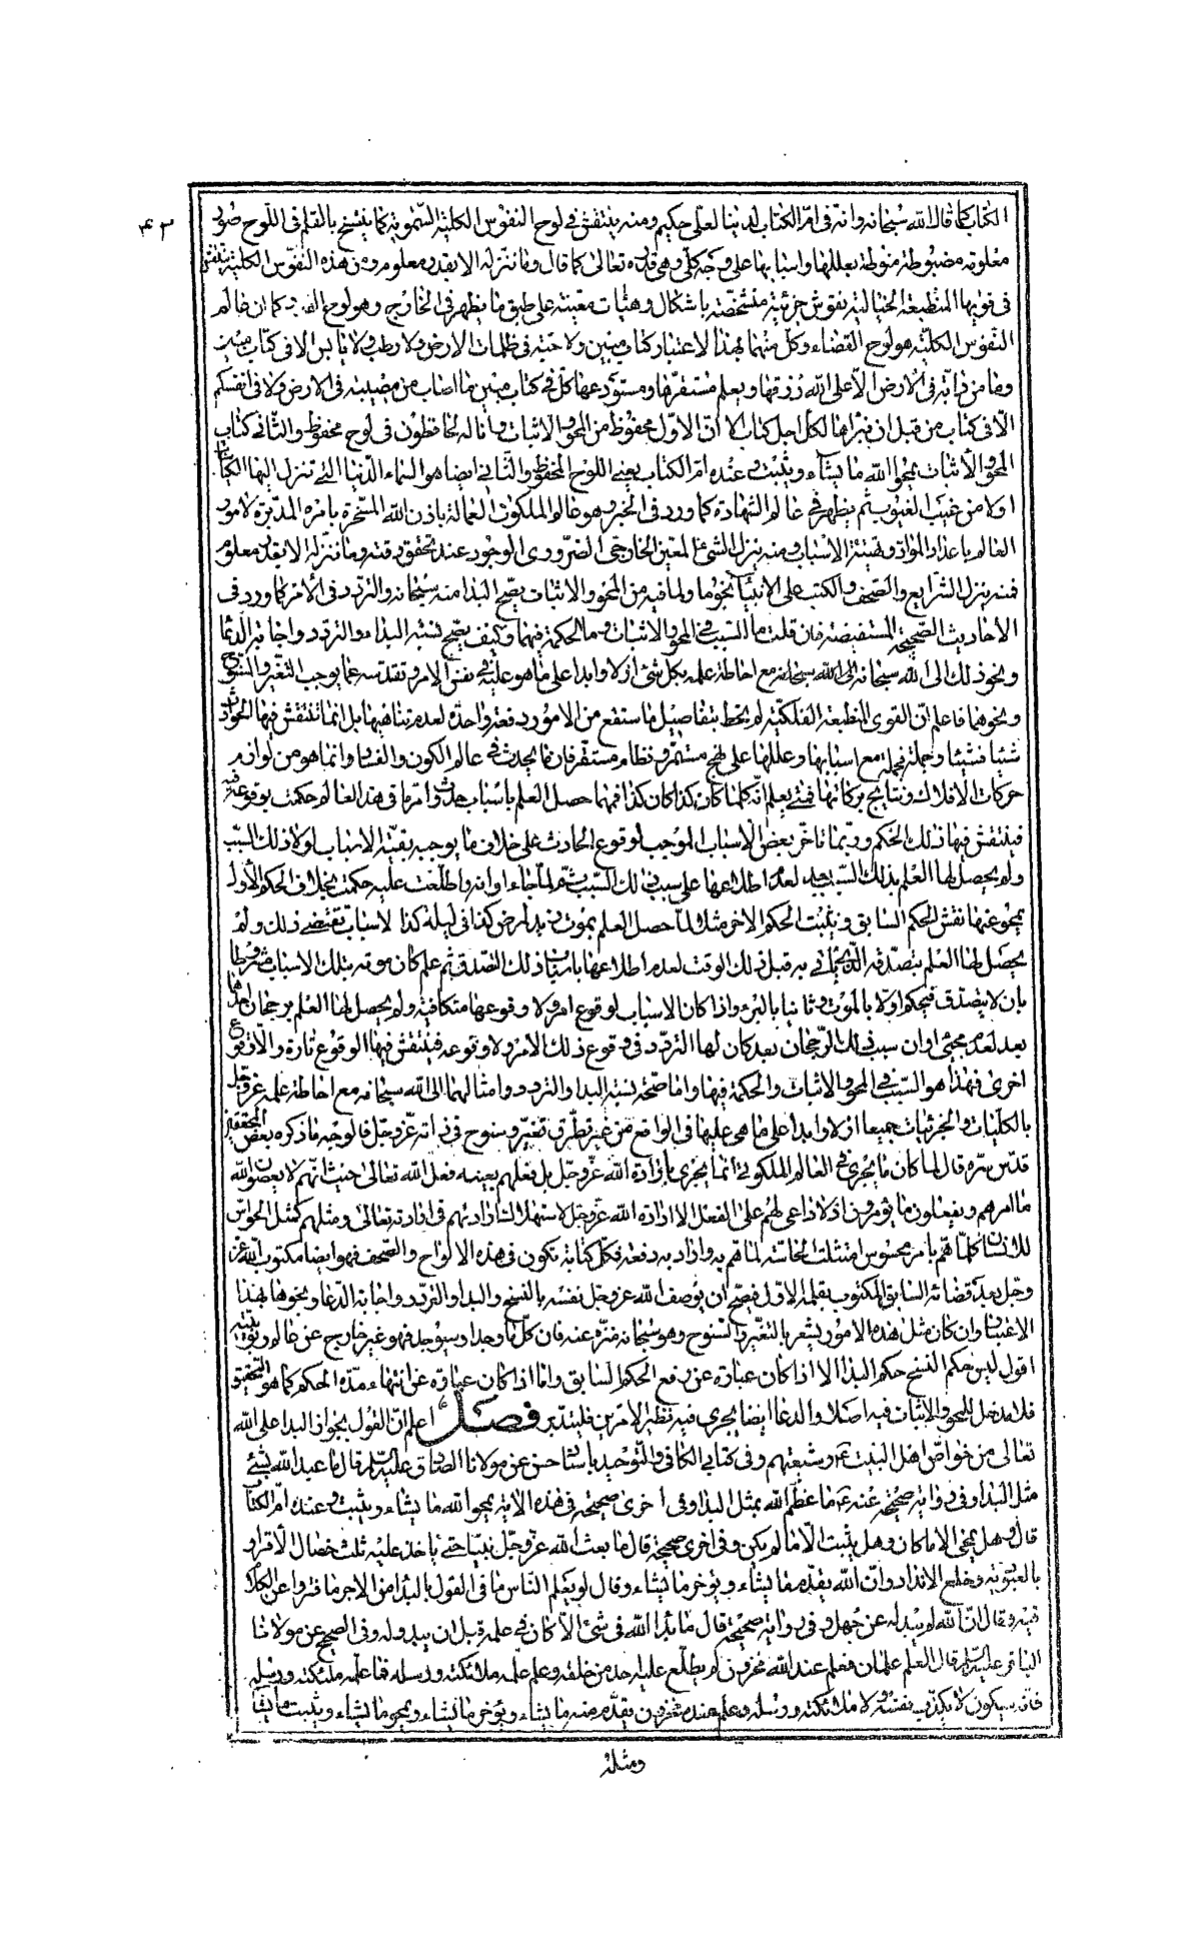 ٤٣
الكتاب كما قال الله سبحانه وانه في ام الكتاب لدينا لعلي حكيم ومنه ينتقش في لوح النفوس الكلية السموية كما ينسخ بالقلم في اللوح صور
معلومة مضبوطة منوطة بعللها واسبابها على وجه كلي وهي قدره تعالى كما قال وما ننزله الا بقدر معلوم ومن هذه النفوس الكلية ينتقش
في قويها المنطبعة الخيالية نقوش جزئية متشخصة باشكال وهيئات معينة على طبق ما يظهر في الخارج وهو لوح القدر كما ان عالم
النفوس الكلية هو لوح القضاء وكل منهما بهذا الاعتبار كتاب مبين ولا حبة في ظلمات الارض ولا رطب ولا يابس الا في كتاب مبين
وما من دابة في الارض الا على الله رزقها ويعلم مستقرها ومستودعها كل في كتاب مبين ما اصاب من مصيبة في الارض ولا في انفسكم
الا في كتاب من قبل ان نبرأها لكل اجل كتاب الا ان الاول محفوظ من المحو والاثبات وانا له لحافظون في لوح محفوظ والثاني كتاب
المحو والاثبات يمحو الله ما يشاء ويثبت وعنده ام الكتاب يعني اللوح المحفوظ والثاني ايضا هو السماء الدنيا التي تنزل اليها الكتاب
اولا من غيب الغيوب ثم يظهر في عالم الشهادة كما ورد في الخبر وهو عالم الملكوت العمالة باذن الله المسخرة بامره المدبرة لامور
العالم باعداد المواد وتهيئة الاسباب ومنه ينزل الشئ المعين الخارجي الضروري الوجود عند تحقق وقته وما ننزله الا بقدر معلوم
فمنه ينزل الشرايع والصحف والكتب على الانبياء نجوما ولما فيه من المحو والاثبات يصح البدا منه سبحانه والتردد في الامر كما ورد في
الاحاديث الصحيحة المستفيضة فان قلت ما السبب في المحو والاثبات وما الحكمة فيهما وكيف يصح نسبة البداء والتردد واجابة الدعا
ونحو ذلك الى الله سبحانه مع احاطة علمه بكل شئ ازلا وابدا على ما هو عليه في نفس الامر وتقدسه عما يوجب التغير والسنوح
ونحوهما فاعلم ان القوى المنطبعة الفلكية لم يحط بتفاصيل ما سيقع من الامور دفعة واحدة لعدم تناهيها بل انما تنتقش فيها الحوادث
شيئا فشيئا وجملة فجملة مع اسبابها وعللها على نهج مستمر ونظام مستقر فان ما يحدث في عالم الكون والفساد انما هو من لوازم
حركات الافلاك ونتايج بركاتها فمتى يعلم انه كلما كان كذا كان كذا فمهما حصل العلم باسباب حدوث امر ما في هذا العالم حكمت بوقوعه فيه
فينتقش فيها ذلك الحكم وربما تأخر بعض الاسباب الموجب لوقوع الحادث على خلاف ما يوجبه بقية الاسباب لولا ذلك السبب
ولم يحصل لها العلم بذلك السبب بعد لعدم اطلاعها على سبب ذلك السبب ثم لما جاء اوانه واطلعت عليه حكمت بخلاف الحكم الاول
يمحو عنها نقش الحكم السابق ويثبت الحكم الاخر مثلا لما حصل العلم بموت زيد لمرض كذا في ليلة كذا لاسباب تقتضي ذلك ولم
يحصل لها العلم بتصدقه الذي سيأتي به قبل ذلك الوقت لعدم اطلاعها باسباب ذلك التصدق ثم علم كان موته بتلك الاسباب مشروطا
بان لا يتصدق فيحكم اولا بالموت وثانيا بالبرء واذا كان الاسباب لوقوع امر ولا وقوعها متكافية ولم يحصل لها العلم برجحان احدهما
بعد لعدم مجئ اوان سبب ذلك الرجحان بعد كان لها التردد في وقوع ذلك الامر ولا وقوعه فينتقش فيها الوقوع تارة واللاوقوع
اخرى فهذا هو السبب في المحو والاثبات والحكمة فيها واما صحة نسبة البدا والتردد وامثالهما الى الله سبحانه مع احاطة علمه عز وجل
بالكليات والجزئيات جميعا ازلا وابدا على ما هي عليها في الواقع من غير تطرق تغير وسنوح في ذاته عز وجل فالوجه ما ذكره بعض المحققين
قدس سره قال لما كان ما يجري في العالم الملكوتي انما يجري بارادة الله عز وجل بل فعلهم بعينه فعل الله تعالى حيث انهم لا يعصون الله
ما امرهم ويفعلون ما يؤمرون اذ لا داعي لهم على الفعل الا ارادة الله عز وجل لاستهلاك ارادتهم في ارادته تعالى ومثلهم كمثل الحواس
للانسان كلما هم بامر محسوس امتثلت الحاسة لما هم به واراد به دفعة فكل كتابة تكون في هذه الالواح والصحف فهو ايضا مكتوب الله عز
وجل بعد قضائه السابق المكتوب بقلمه الاول فيصح ان يوصف الله عز وجل نفسه بالنسخ والبدا والتردد واجابة الدعا ونحوها بهذا
الاعتبار وان كان مثل هذه الامور يشعر بالتغير والسنوح وهو سبحانه منزه عنه فان كل ما وجد او سيوجد فهو غير خارج عن عالم ربوبيته
اقول ليس حكم النسخ حكم البدا الا اذا كان عبارة عن رفع الحكم السابق واما اذا كان عبارة عن انتهاء مدة الحكم كما هو التحقيق
فلا مدخل للمحو والاثبات فيه اصلا والدعا ايضا يجري فيه نظير الامرين فليتدبر فصل اعلم ان القول بجواز البدا على الله
تعالى من خواص اهل البيت ع وشيعتهم وفي كتابي الكافي والتوحيد باسناد حسن عن مولانا الصادق عليه السلم قال ما عبد الله بشئ
مثل البدا وفي رواية صحيحة عنه ع ما عظم الله بمثل البدا وفي اخرى صحيحة في هذه الاية يمحو الله ما يشاء ويثبت وعنده ام الكتاب
قال وهل يمحى الا ما كان وهل يثبت الا ما لم يكن وفي اخرى صحيحة قال ما بعث الله عز وجل نبيا حتى ياخذ عليه ثلث خصال الاقرار
بالعبودية وخلع الانداد وان الله يقدم ما يشاء ويؤخر ما يشاء وقال لو يعلم الناس ما في القول بالبدا من الاجر ما فتروا عن الكلام
فيه وقال ان الله لم يبد له عن جهل وفي رواية صحيحة قال ما بدا الله في شئ الا كان في علمه قبل ان يبدو له وفي الصحيح عن مولانا
الباقر عليه السلم قال العلم علمان فعلم عند الله مخزون لم يطلع عليه احد من خلقه وعلم علمه ملائكته ورسله فما علمه ملائكته ورسله
فانه سيكون لا يكذب نفسه ولا ملائكته ورسله وعلم عنده مخزون يقدم منه ما يشاء ويؤخر ما يشاء ويمحو ما يشاء ويثبت ما يشاء
ومثله